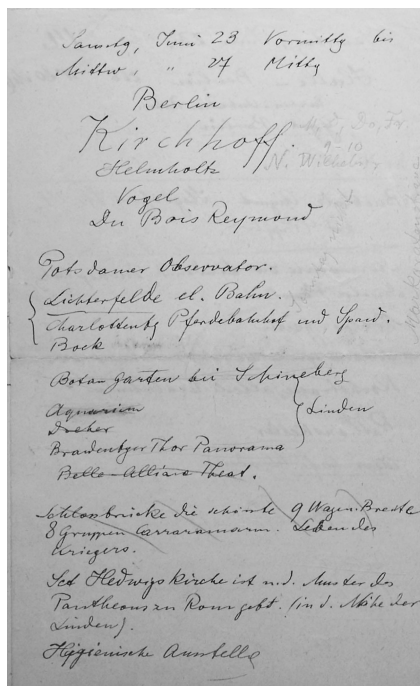 Samstg, Juni 23 Vormittg bis
Mittw. „ 27 Mittg
Berlin
Kirchhoff. Do, Fr.
9-10
Helmholtz N. Wilhelmstr.
Vogel
Du Bois Reymond
Potsdamer Observator.
Lichterfelde el. Bahn.
Charlottenbg Pferdebahnhof und Spand.
Bock
Botan Garten bei Schöneberg
Aquarium
Dreher
Linden
Brandenbger Thor Panorama
Belle-Alliance Theat.
Schlossbrücke die schönste 9 Wagen Breite
8 Gruppen Carraramarm. Leben des
Kriegers.
Sct Hedwigskirche ist n. d. Muster des
Pantheons zu Rom gebt. (in d. Nähe der
Linden).
Hygienische Ausstellg